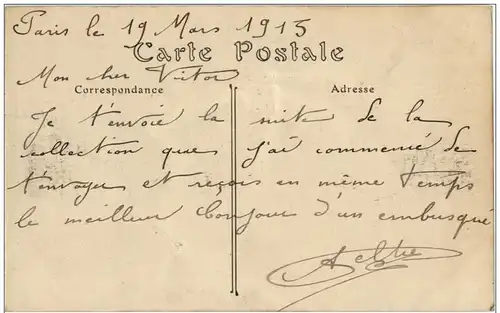 Paris le 19 Mars 1915
Carte Postale
Mon cher Victor
Correspondance
Adresse
Je t'envoie la suite de la
collection que j'ai commencé de
t'envoyer et reçois en même temps
le meilleur bonjour d'un embusqué